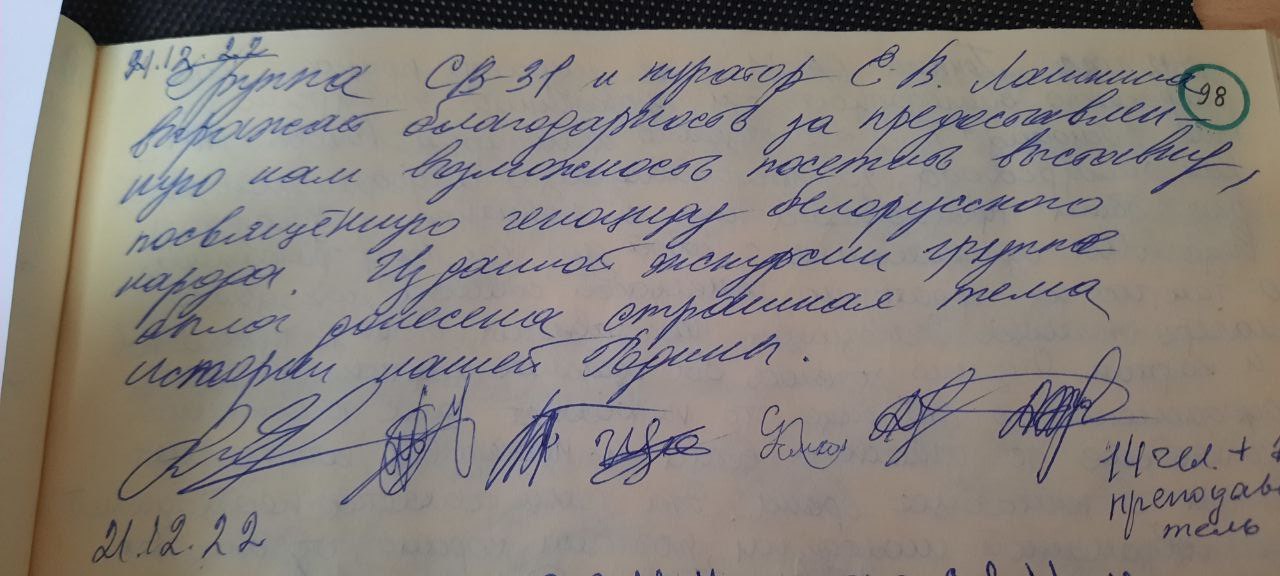 21.12.22
Группа СВ-31 и куратор Е.В. Лашкина
98
выражают благодарность за предоставлен-
ную нам возможность посетить выставку,
посвящённую геноциду белорусского
народа. Из данной экскурсии группе
была донесена страшная тема
истории нашей Родины.
14 чел. +
преподава
тель
21.12.22